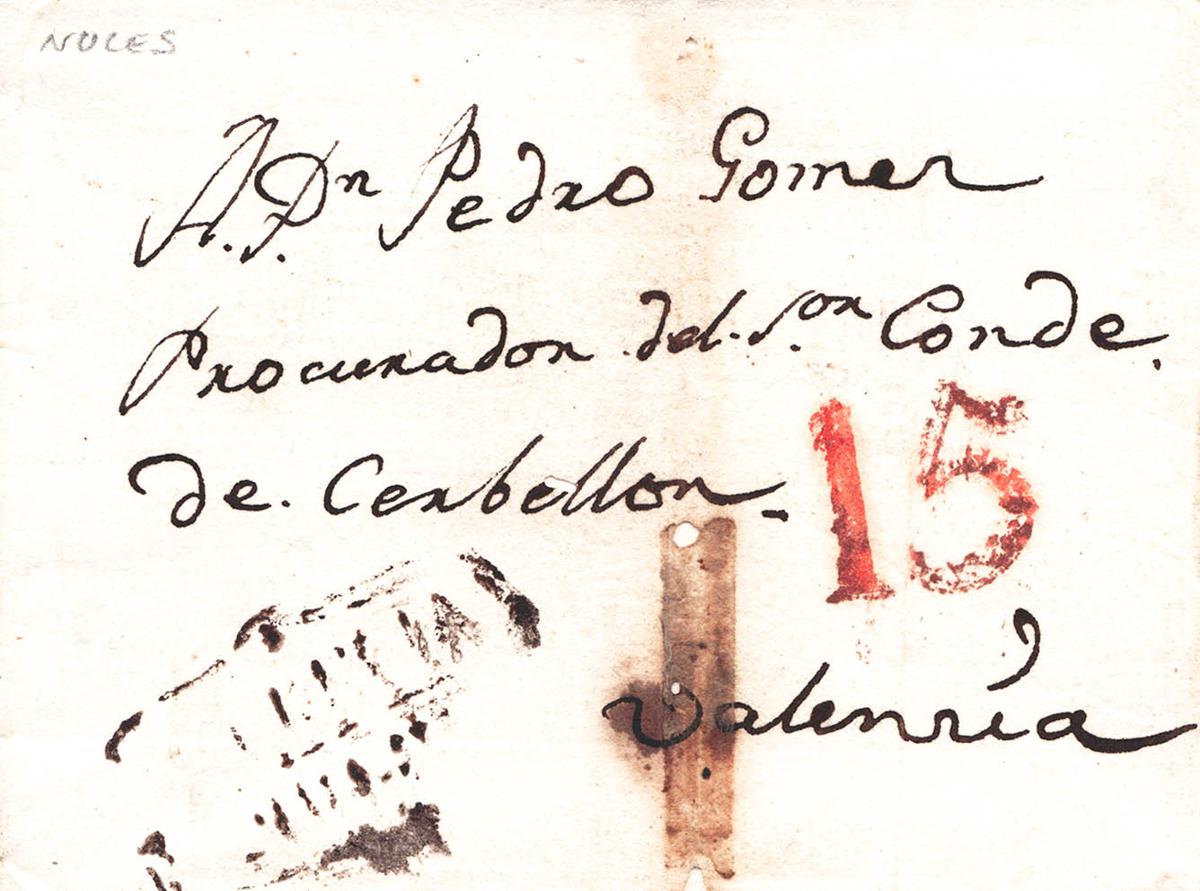 NULES
A. Dn Pedro Gomez
Procurador del Sor Conde.
de. Cerbellon.
15
Valencia